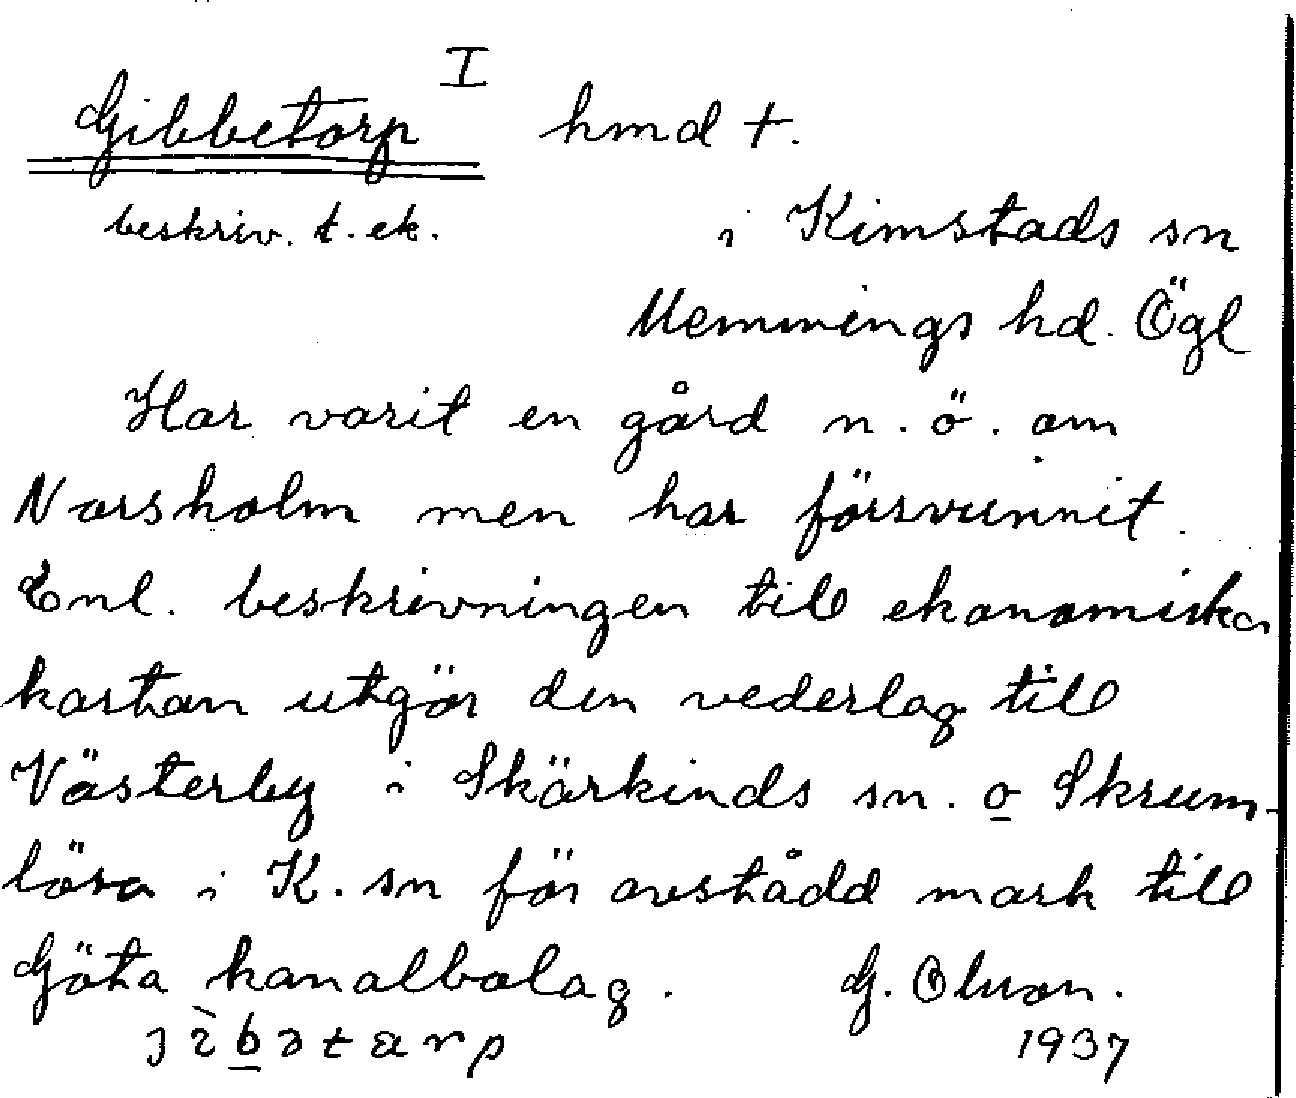 I
Gibbetorp hmd +.
beskriv. t. ek. i Kimstads sn
Memmings hd. Ögl
Har varit en gård n. ö. om
Norsholm men har försvunnit.
Enl. beskrivningen till ekonomiska
kartan utgör den vederlag till
Västerby i Skärkinds sn. o Skrum-
lösa i K. sn för avstådd mark till
Göta kanalbolag. G. Olsson.
1937